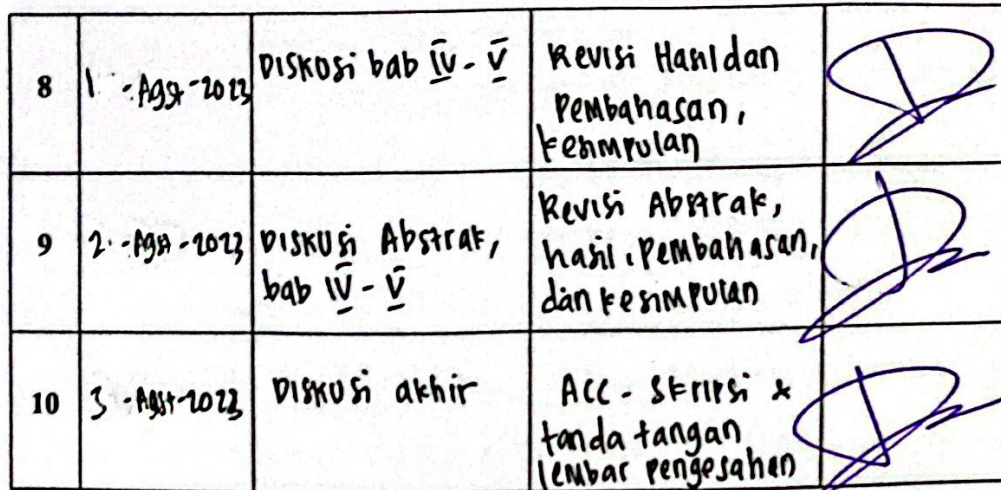 8
1 - Agst - 2023
Diskusi bab IV - V
Revisi Hasil dan
Pembahasan,
kesimpulan
9
2 - Agst - 2023
Diskusi Abstrak,
bab IV - V
Revisi Abstrak,
hasil, pembahasan,
dan kesimpulan
10
3 - Agst - 2023
Diskusi akhir
ACC - Skripsi &
tanda tangan
lembar pengesahan